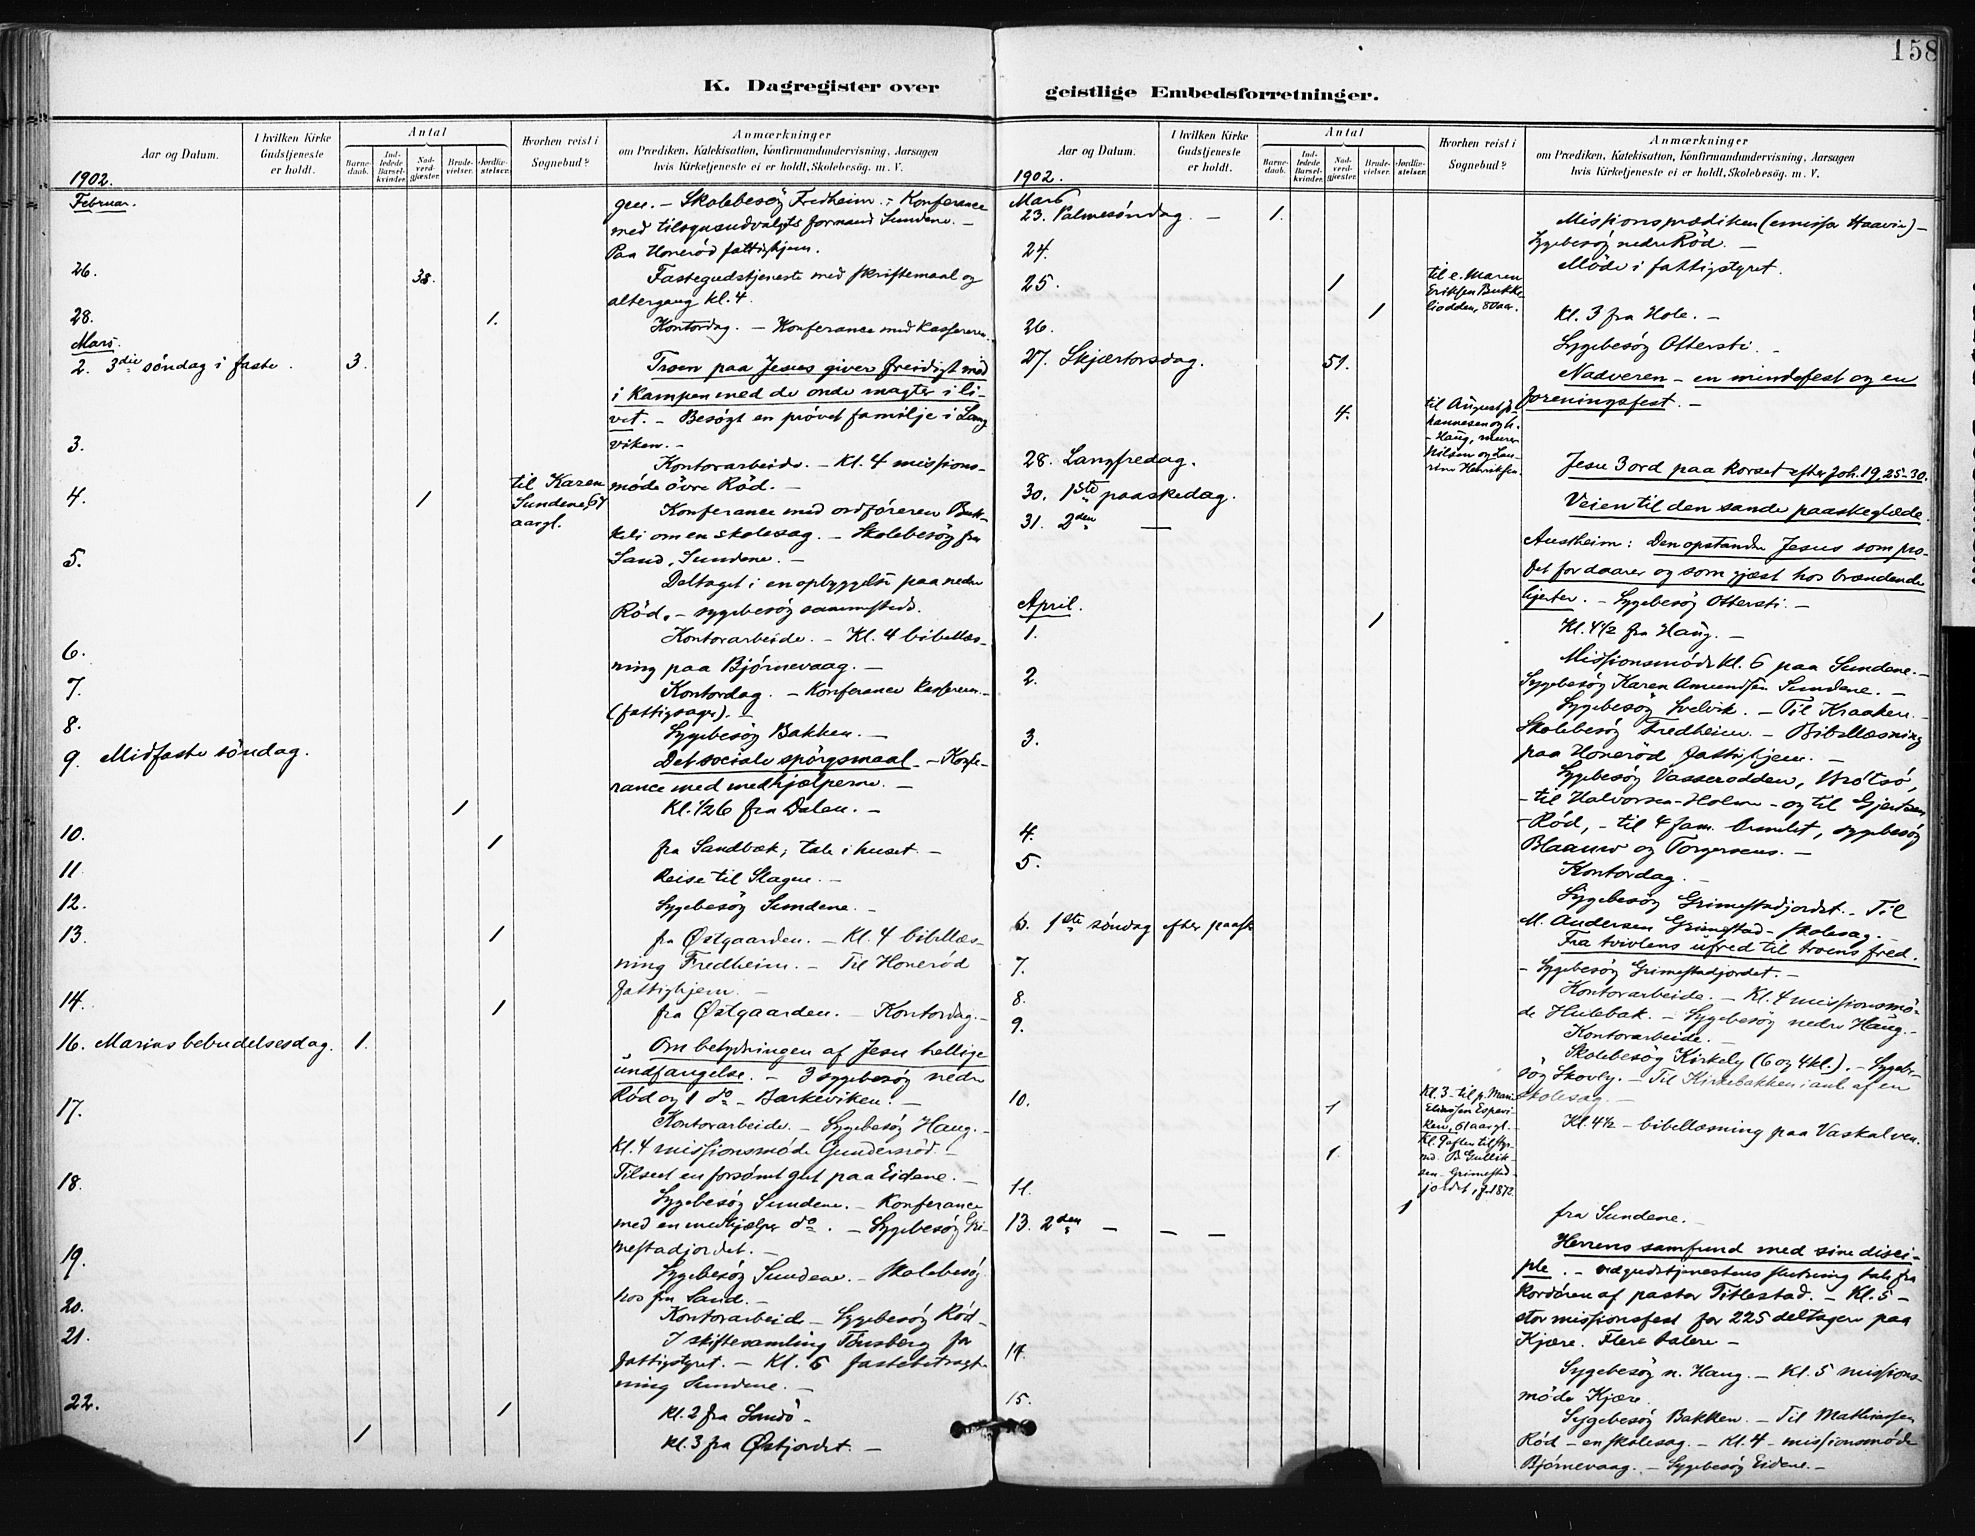 158
K. Dagregister over
Aar og Datum.
I hvilken Kirke Gudstjeneste er holdt.
Antal
Barnedaab.
Indledede Barselkvinder.
Nadverdgjæster.
Brudevielser.
Jordfæstelser.
Hvorhen reist i Sognebud?
Anmærkninger
om Prædiken, Katekisation, Konfirmandundervisning, Aarsagen
hvis Kirketjeneste ei er holdt, Skolebesög. m. V.
1902.
Februar.
gen. – Skolebesög Fredheim. – Konferance
med tilsynsudvalgets formand Sundene. –
Paa Honeröd fattighjem.
26. 38. Fastegudstjeneste med skriftemaal og
altergang kl. 4.
28. 1. Kontordag. – Konferance med kassereren.
Mars.
2. 3die söndag i faste. 3. Troen paa Jesus giver freidigt mod
i kampen med de onde magter i li-
vet. – Besögt en prövet familje i Lang
viken. –
3. Kontorarbeide. – Kl. 4 missions-
möde övre Röd. –
4. 1 til Karen
Sundene, 67
aargl.
Konferance med ordföreren Buk-
keli om en skolesag. – Skolebesög frk
Sand, Sundene. –
5. Deltaget i en opbyggelse paa nedre
Röd. – sygebesög sammesteds.
6. Kontorarbeide. – Kl. 4 bibellæs-
ning paa Bjørnevaag. –
7. Kontordag. – Konferance kassereren
(fattigsager). –
8. Sygebesög Bakken. –
9. Midfaste söndag. Det sociale spörgsmaal. – Konfe-
rance med medhjælperne. –
1 Kl. 1/2 6 fra Dalen. –
10. 1 fra Sandbæk; tale i huset. –
11. Reise til Slagen. –
12. Sygebesög Sundene. –
13. 1 fra Østgaarden. – Kl. 4 bibellæs-
ning Fredheim. – Til Honeröd
fattighjem. –
14. 1 fra Østgaarden. – Kontordag. –
16. Marias bebudelsesdag. 1. Om betydningen af Jesu hellige
undfangelse. – 3 sygebesög nedre
Röd og 1 do – Barkeviken. –
17. Kontorarbeide. – Sygebesög Haug. –
Kl. 4 missionsmöde Gundersröd. –
Tilseet en forsömt gut paa Eidene. –
18. Sygebesög Sundene. – Konferance
med en medhjælper do. – Sygebesög Gri-
mestadjordet. –
19. Sygebesög Sundene. – Skolebesög
hos frk Sand. –
20. Kontorarbeide – Sygebesög Röd –
21. I skiftesamling Tönsberg for
fattigstyret. – Kl. 5 fastebetragt-
ning Sundene. –
22. 1 Kl. 2 fra Sandö –
1 Kl. 3 fra Østjordet. –
geistlige Embedsforretninger.
Aar og Datum.
I hvilken Kirke Gudstjeneste er holdt.
Antal
Barnedaab.
Indledede Barselkvinder.
Nadverdgjæster.
Brudevielser.
Jordfæstelser.
Hvorhen reist i Sognebud?
Anmærkninger
om Prædiken, Katekisation, Konfirmandundervisning, Aarsagen
hvis Kirketjeneste ei er holdt, Skolebesög. m. V.
1902.
Mars
23. Palmesöndag. – 1. Missionsprædiken (emissær Haavin) –
Sygebesög nedre Röd. –
24. Möde i fattigstyret.
25. 1 til e. Maren
Eriksen Bukke-
liodden, 80 aar.
1 Kl. 3 fra Hole. –
26. Sygebesög Ottersti. –
27. Skjærtorsdag. 51. Nadveren – en mindefest og en
foreningsfest. –
4. til August Jo-
hannesen og h.
– Haug, murer
Nilsen og Lau-
rine Henriksen.
28. Langfredag. Jesu 3 ord paa korset efter Joh. 19, 25–30.
30. 1ste paaskedag. Veien til den sande paaskeglæde.
31. 2den — Austheim: Den opstandne Jesus som pro-
fet for daarer og som gjæst hos brændende
hjerter. – Sygebesög Ottersti. –
April.
1. 1 Kl. 4 1/2 fra Haug. –
Missionsmöde kl. 6 paa Sundene. –
2. Sygebesög Karen Amundsen Sundene. –
Sygebesög Svelvik. – Til Kraaken. –
3. Skolebesög Fredheim. – Bibellæsning
paa Honeröd fattighjem. –
Sygebesög Vasserodden, Brötsö,
– til Halvorsen – Holme – og til Gjertsen
– Röd, – til 4 fam. Ormelet, sygebesög
Blaauw og Torgersens. –
4. Kontordag. –
5. Sygebesög Grimestadjordet. – Til
M. Andersen Grimestad – skolesag. –
6. 1ste söndag efter paaske Fra tvivlens ufred til troens fred.
– Sygebesög Grimestadjordet. –
7. Kontorarbeide. – Kl. 4 missionsmö-
de Hulebak. – Sygebesög nedre Haug. –
8. Kontorarbeide. –
9. Skolebesög Kirkely (6 og 4 kl.). – Sygebe-
sög Skovly. – Til Kirkebakken i anl. af en
skolesag. –
10. 1 Kl. 3 – til p. Marie
Eliassen Espevi-
ken, 51 aar gl. –
Kl. 4 1/2 – bibellæsning paa Vaskalven.
1 Kl. 9 aften til styr-
md. B Gullik-
sen – Grimestad-
jordet, f. 1872.
11. 1 fra Sundene. –
13. 2den – – – Herrens samfund med sine disci-
ple. – ved gudstjenestens slutning tale fra
kordören af pastor Titlestad. – Kl. 5 –
stor missionsfest for 225 deltagere paa
Kjære. Flere talere –
14. Sygebesög n. Haug. – Kl. 5 missions-
möde Kjære.
15. Sygebesög Bakken. – Til Mathiassen
Röd – en skolesag. – Kl. 4 – missionsmöde
Bjørnevaag. – Sygebesög Eidene. –